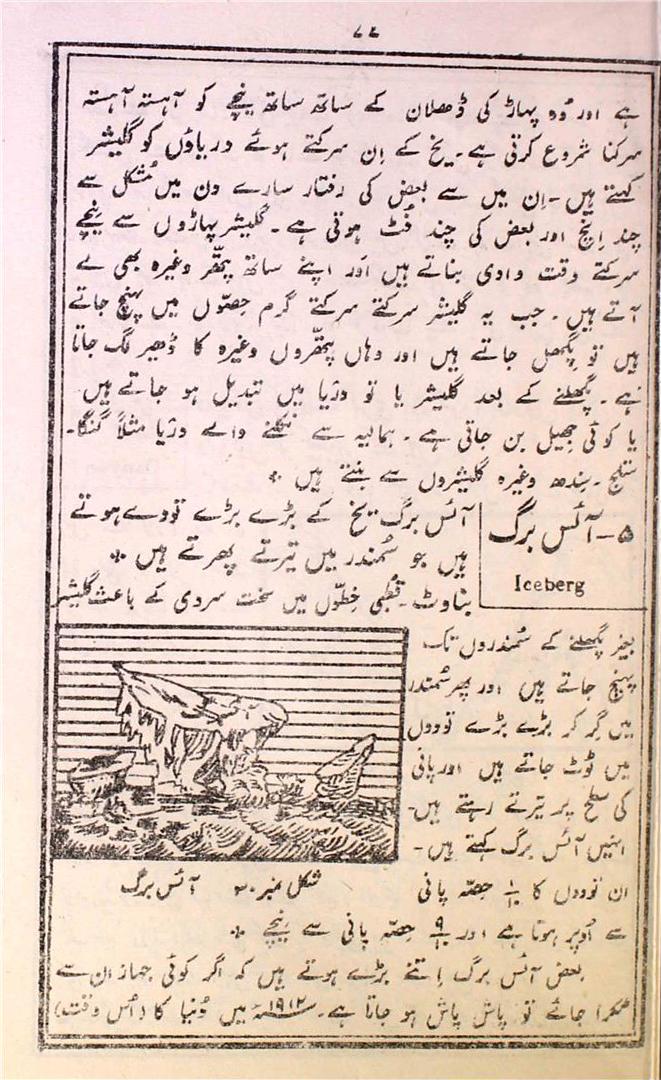 ہے اور وُہ پہاڑ کی ڈھلان کے ساتھ ساتھ نیچے کو آہستہ آہستہ
سرکنا شروع کرتی ہے۔ یخ کے اِن سرکتے ہوئے دریاؤں کو گلیشر
کہتے ہیں۔ اِن میں سے بعض کی رفتار سارے دن میں مُشکل سے
چند اِنچ اور بعض کی چند فُٹ ہوتی ہے۔ گلیشر پہاڑوں سے نیچے
سرکتے وقت وادی بناتے ہیں اور اپنے ساتھ پتھّر وغیرہ بھی لے
آتے ہیں۔ جب یہ گلیشر سرکتے سرکتے گرم حِصّوں میں پہنچ جاتے
ہیں تو پِگھل جاتے ہیں اور وہاں پتھّروں وغیرہ کا ڈھیر لگ جاتا
ہے۔ پگھلنے کے بعد گلیشر یا تو دریا میں تبدیل ہو جاتے ہیں
یا کوئی جھیل بن جاتی ہے۔ ہمالیہ سے نکلنے والے دریا مثلاً گنگا۔
ستلج۔ سِندھ وغیرہ گلیشروں سے بنتے ہیں ٭
۵۔ آئس برگ
Iceberg
آئس برگ یخ کے بڑے بڑے تودے ہوتے
ہیں جو سُمندر میں تیرتے پھرتے ہیں ٭
بناوٹ۔ قُطبی خِطّوں میں سخت سردی کے باعث گلیشر
بغیر پگھلنے کے سُمندروں تک
پہنچ جاتے ہیں اور پھر سُمندر
میں گِر کر بڑے بڑے تودوں
میں ٹوٹ جاتے ہیں اور پانی
کی سطح پر تیرتے رہتے ہیں۔
انہیں آئس برگ کہتے ہیں۔
شکل نمبر ۳۰ آئس برگ
ان تودوں کا ۱/۱۰ حِصّہ پانی
سے اُوپر ہوتا ہے اور ۹/۱۰ حِصّہ پانی سے نیچے ٭
بعض آئس برگ اِتنے بڑے ہوتے ہیں کہ اگر کوئی جہاز ان سے
ٹکرا جائے تو پاش پاش ہو جاتا ہے۔ ۱۹۱۲ء میں دُنیا کا (اُس وقت)